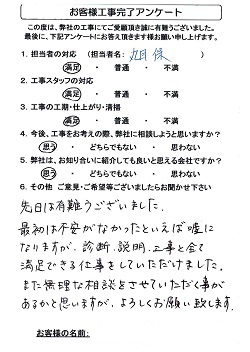 お客様工事完了アンケート
この度は、弊社の工事にてご受頼頂き誠に有難うございました。
最後に、下記アンケートにお答え頂きます様お願い申し上げます。
1. 担当者の対応 (担当者名:
満足 ・ 普通 ・ 不満
2. 工事スタッフの対応
満足 ・ 普通 ・ 不満
3. 工事の工期・仕上がり・清掃
満足 ・ 普通 ・ 不満
4. 今後、工事をお考えの際、弊社に相談しようと思いますか?
思う ・ どちらでもない ・ 思わない
5. 弊社は、お知り合いに紹介しても良いと思える会社ですか?
思う ・ どちらでもない ・ 思わない
6. その他 ご意見・ご希望等ございましたらお聞かせ下さい
先日は有難うございました。
最初は不安がなかったといえば嘘に
なりますが、診断、説明、工事と全て
満足できる仕事をしていただけました。
また無理な相談をさせていただく事が
あるかと思いますが、よろしくお願い致します。
お客様の名前: